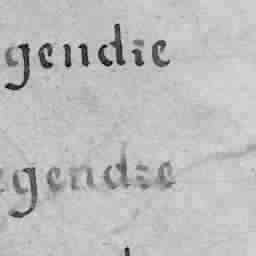 gendie
egendze